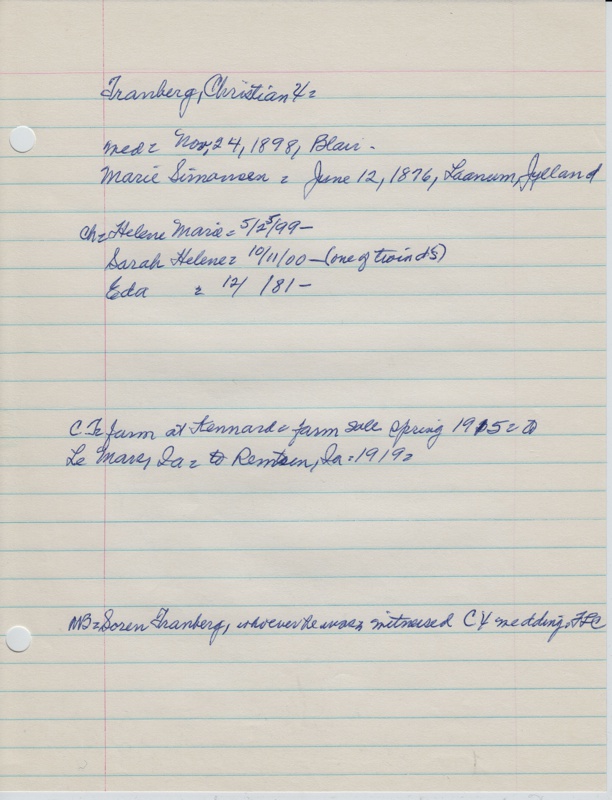 Tranberg, Christian =
med = Nov, 24, 1898, Blair -
Marie Simonsen = June 12, 1876, Laanum, Jylland
ch = Helene Marie = 5/25/99 -
Sarah Helene = 10/11/00 - (one of twin ds)
Eda = 12/ /81 -
farm at Kennard = farm sale spring 1915 = to
Le Mars, Ia = to Remsen, Ia = 1919 =
NB = Soren Tranberg, whoever he was, witnessed C wedding.